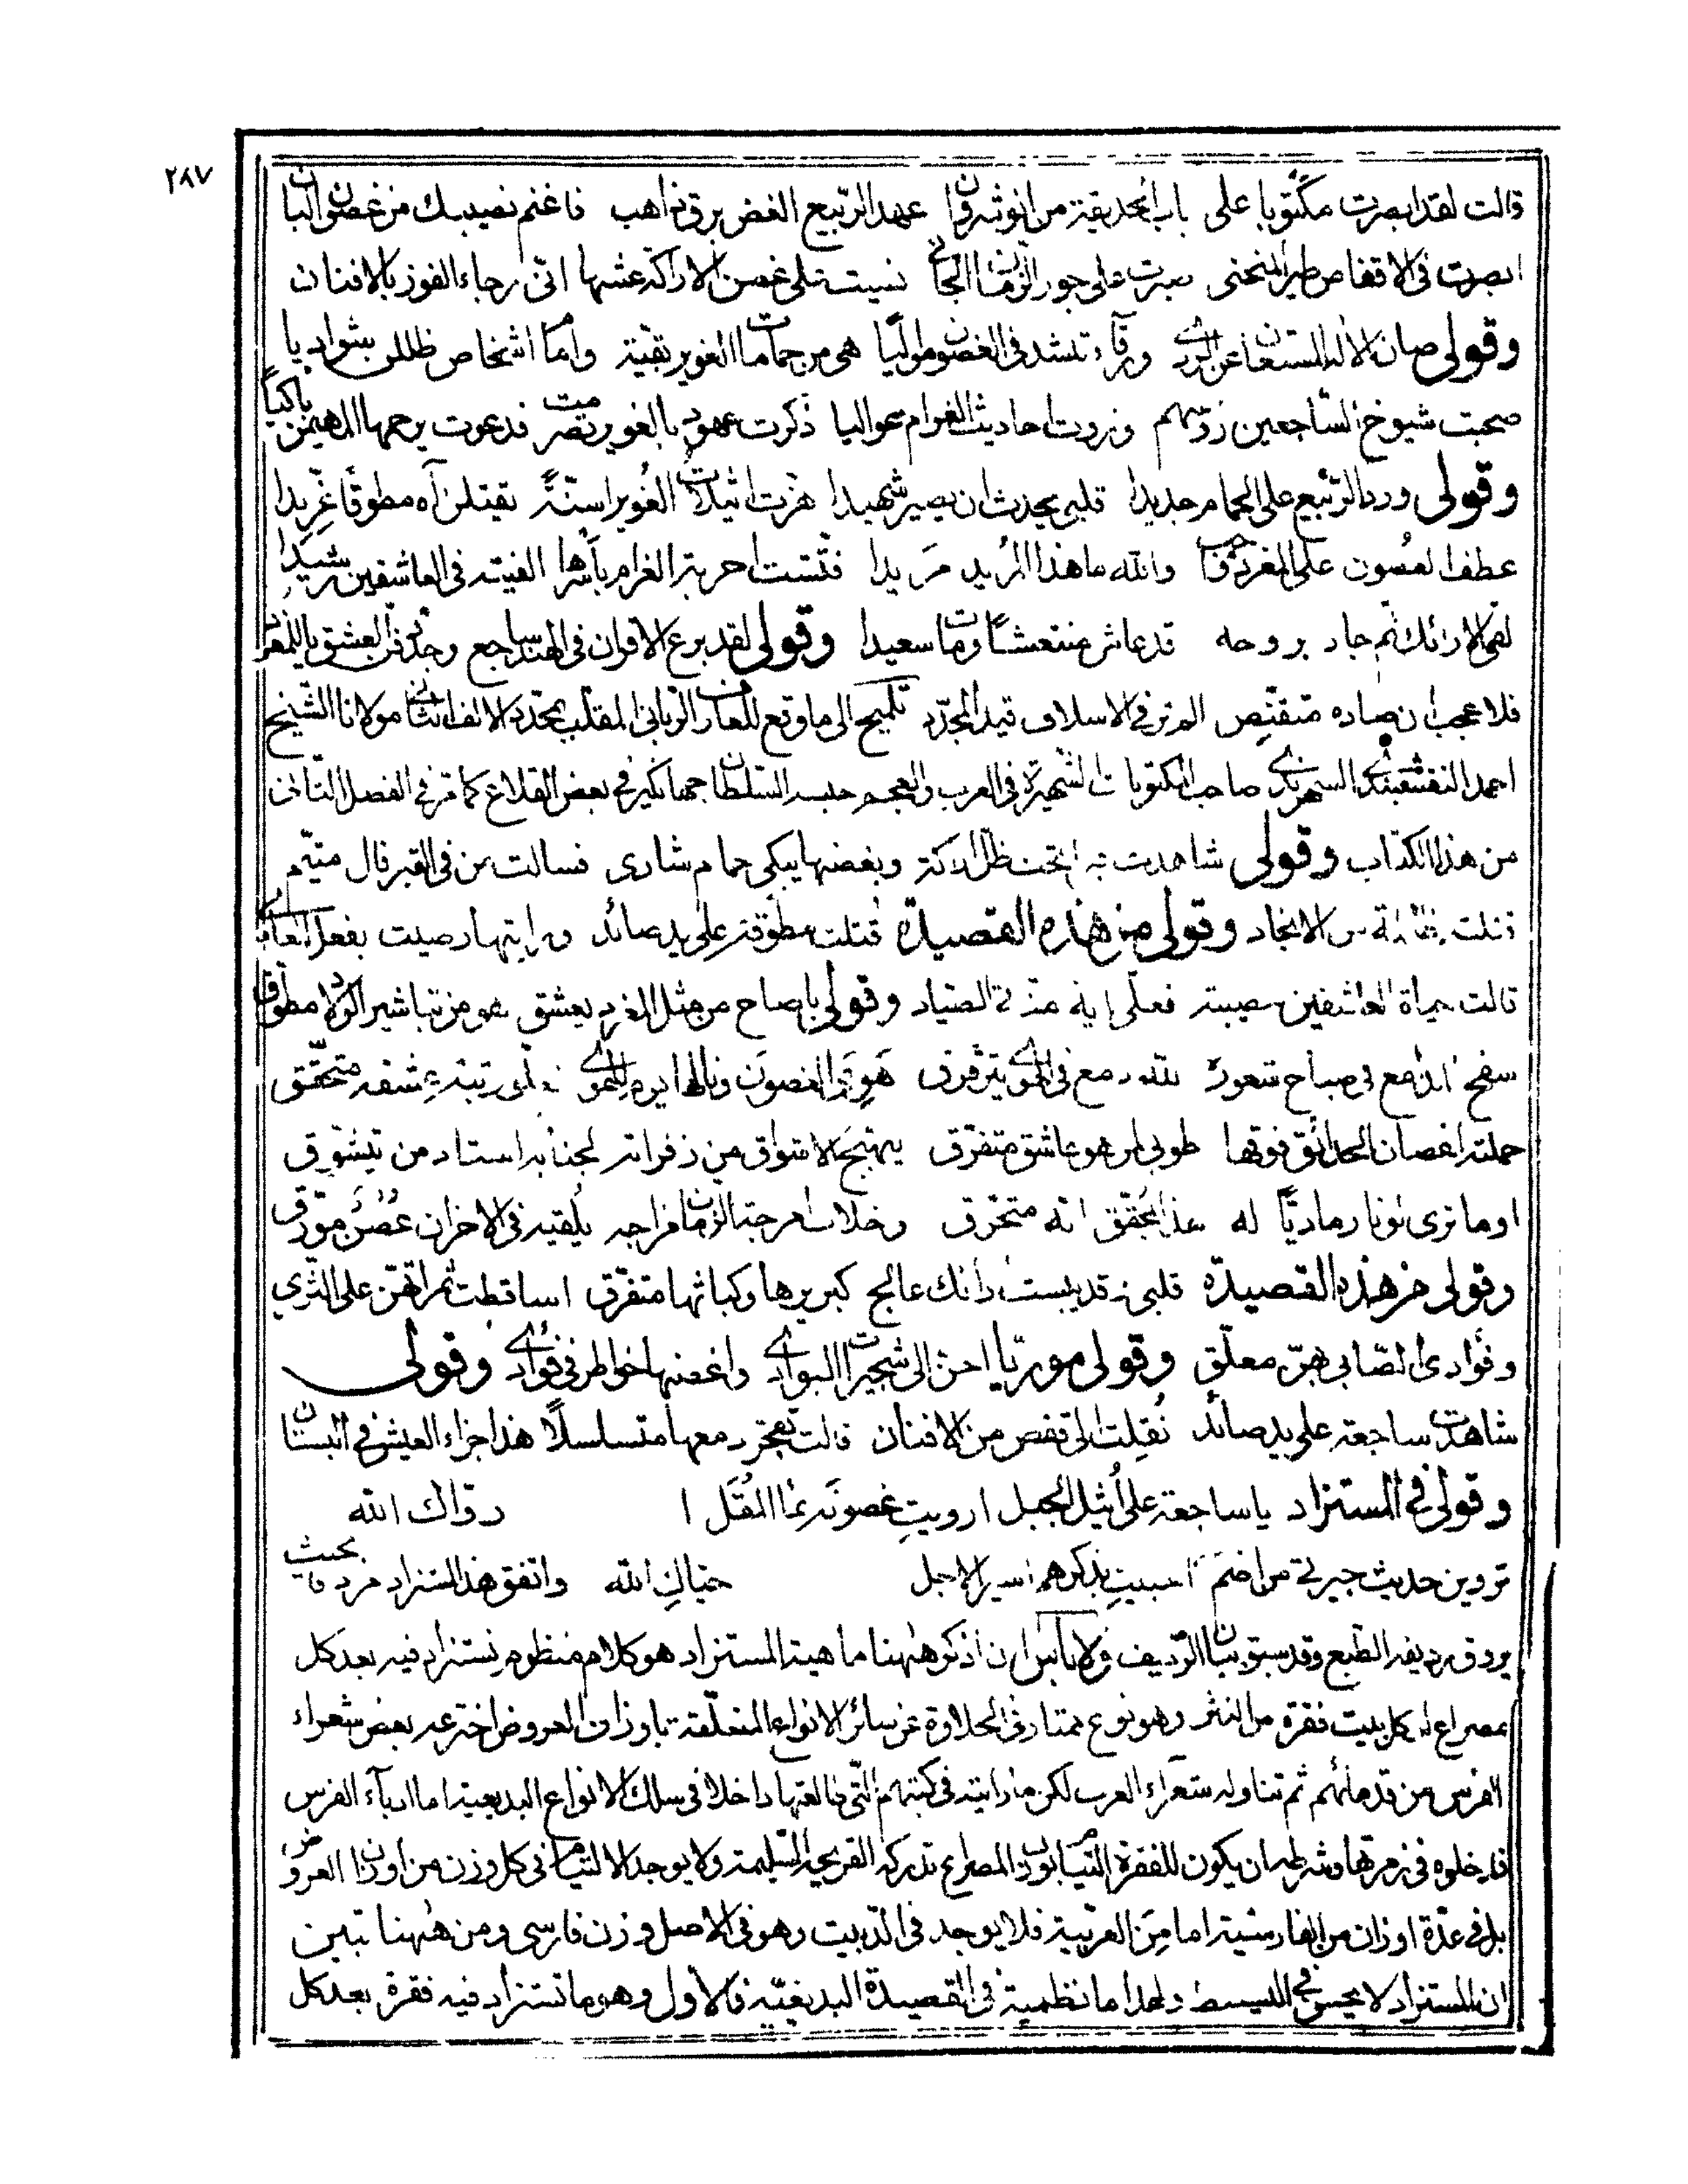 ٢٨٧
قالت لقد ابصرت مكتوبا على باب الحديقة من انوشروان عهد الربيع الغض برق ذاهب فاغنم نصيبك من غصون البان
ابصرت في الاقفاص طير المنحنى صبرت على جور الزمان الجاني نسيت على غصن الاراكة عشها اتى رجاء الفوز بالافنان
وقولي صان الاله المستعان عن الردى ورقاء تنشد في الغصون مواليا هي من حمامات الغوير بقية واما اشخاص ظللن بواديا
صحبت شيوخ الساجعين وروت احاديث الغرام عواليا ذكرت عهود بالغوير تصرمت فدعوت يرحمها المهيمن باكيا
وقولي ورد الربيع على الحمام جديدا قلبي يحدث ان يصير شهيدا هزت اثيلات الغوير اسنة يقتلن آه مطوقا غريدا
عطف الغصون على المغرد حرفها والله ما هذا المريد مريدا فتشت احزبة الغرام باسرها الفيته في العاشقين رشيدا
لقي الارائك ثم جاد بروحه قد عاش منتعشا ومات سعيدا وقولي لقد برع الاقران في الهند ساجع وجدد فن العشق يا للمغرد
فلا عجب ان صاده متقنص الم تر في الاسلاف قيد المجدد تلميح الى ما وقع للعارف الرباني الملقب بمجدد الالف الثاني مولانا الشيخ
احمد النقشبندي السهرندي صاحب المكتوبات الشهيرة في العرب والعجم حبسه السلطان جهانكير في بعض القلاع كما مر في الفصل الثاني
من هذا الكتاب وقولي شاهدت تحت ظل اراكة وبغصنها يبكي حمام شادي فسالت من في القبر قال متيم
قتلت من الانجاد وقولي من هذه القصيدة قتلت مطوقة على يد صائد ورايتها رضيت بفعل العادي
قالت حياة العاشقين مصيبة فعلي منة الصياد وقولي يا صاح من مثل المغرد يعشق هو من تباشير الولاد مطوق
سفح المدامع في صباح شعوره لله دمع في الهوى يترقرق هوي الغصون ونالها يوم النوى على رتبة عشقه متحقق
حملته اغصان الحدائق فوقها طوبى لمن هو عاشق متفرق يهتج الاشواق من زفراته لجنابه استاد من يتشوق
اوما ترى لونا رماديا له هذا يحقق انه متحرق وخلاف امزجة الزمان مزاجه يلقيه في الاحزان غصن مورق
وقولي من هذه القصيدة قلبي قد يبست اراك عالج كبريرها وكباثها متفرق اساقطت ثمراتهن على الثرى
وفؤادي الصابي بهن معلق وقولي موريا احن الى شجيرات البوادي واغصنها خواطر في فؤادي وقولي
شاهدت ساجعة على يد صائد نقلت الى قفص من الافنان قالت تفجر دمعها متسلسلا هذا جزاء العيش في البستان
وقولي في المستزاد يا ساجعة على اثيل الجبل ارويت غصونه بماء المقل رواك الله
تروين حديث جيرتي من اضم احييت بذكرهم اسير الاجل حياك الله واتفق هذا المستزاد مردفا بحيث
يروق رديفه الطبع وقد سبق بيان الرديف ولا باس ان اذكر ههنا ماهية المستزاد هو كلام منظوم يستزاد فيه بعد كل
مصراع او كل بيت فقرة من النثر وهو نوع ممتاز في الحلاوة عن سائر الانواع المتعلقة باوزان العروض اخترعه بعض شعراء
الفرس من قدمائهم ثم تناوله شعراء العرب لكن ما رايته في كتبهم التي طالعتها داخلا في سلك الانواع البديعية اما ادباء الفرس
فادخلوه في زمرتها وشرطه ان يكون للفقرة التيام بوزن المصراع تدركه القريحة السليمة ولا يوجد الالتيام في كل وزن من اوزان العروض
بل في عدة اوزان من الفارسية اما من العربية فلا يوجد في الدوبيت وهو في الاصل وزن فارسي ومن ههنا تبين
ان المستزاد لا يحسن في البسيط ولهذا ما نظمته في القصيدة البديعية فالاول وهو ما تستزاد فيه فقرة بعد كل